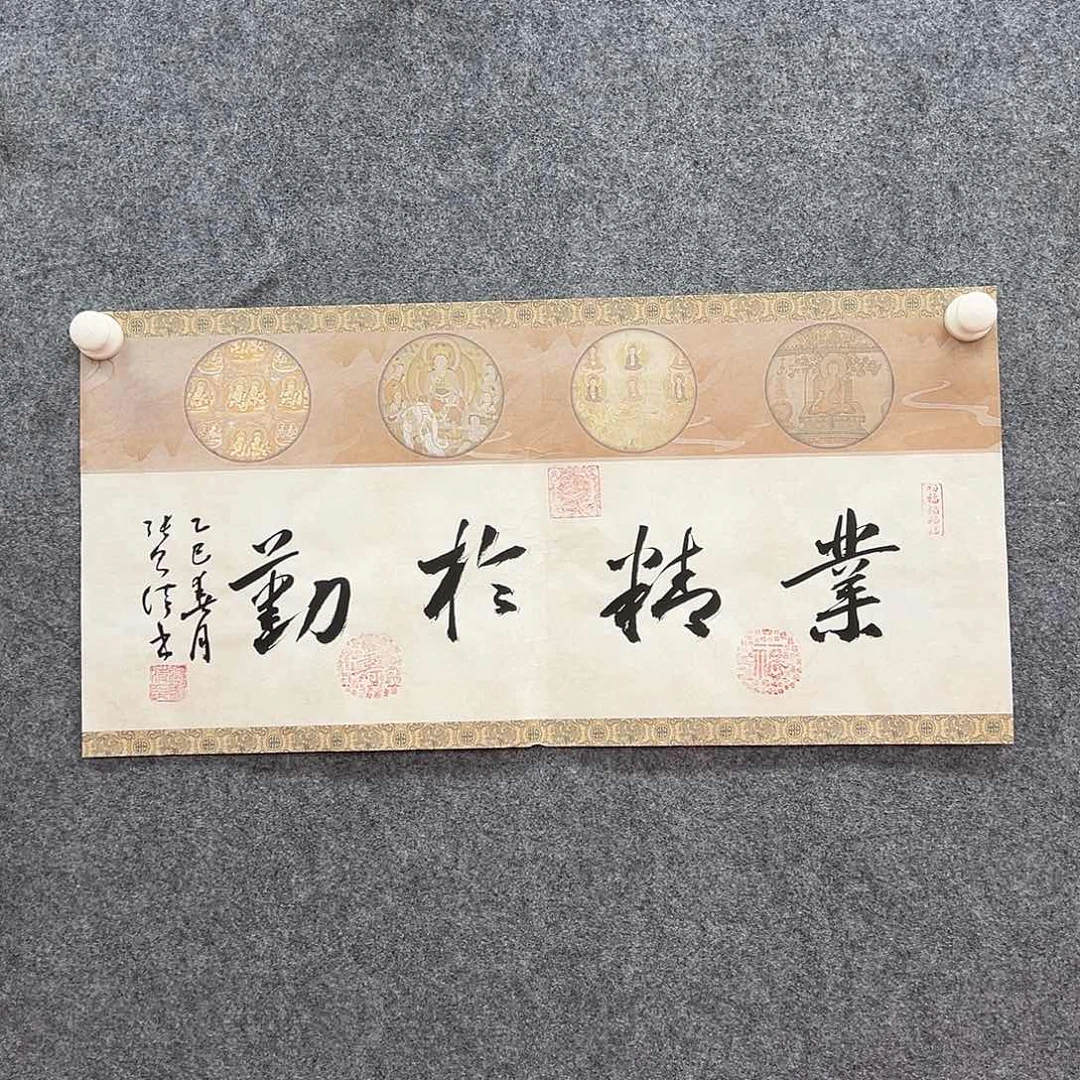 業精於勤
乙巳春月
張

書